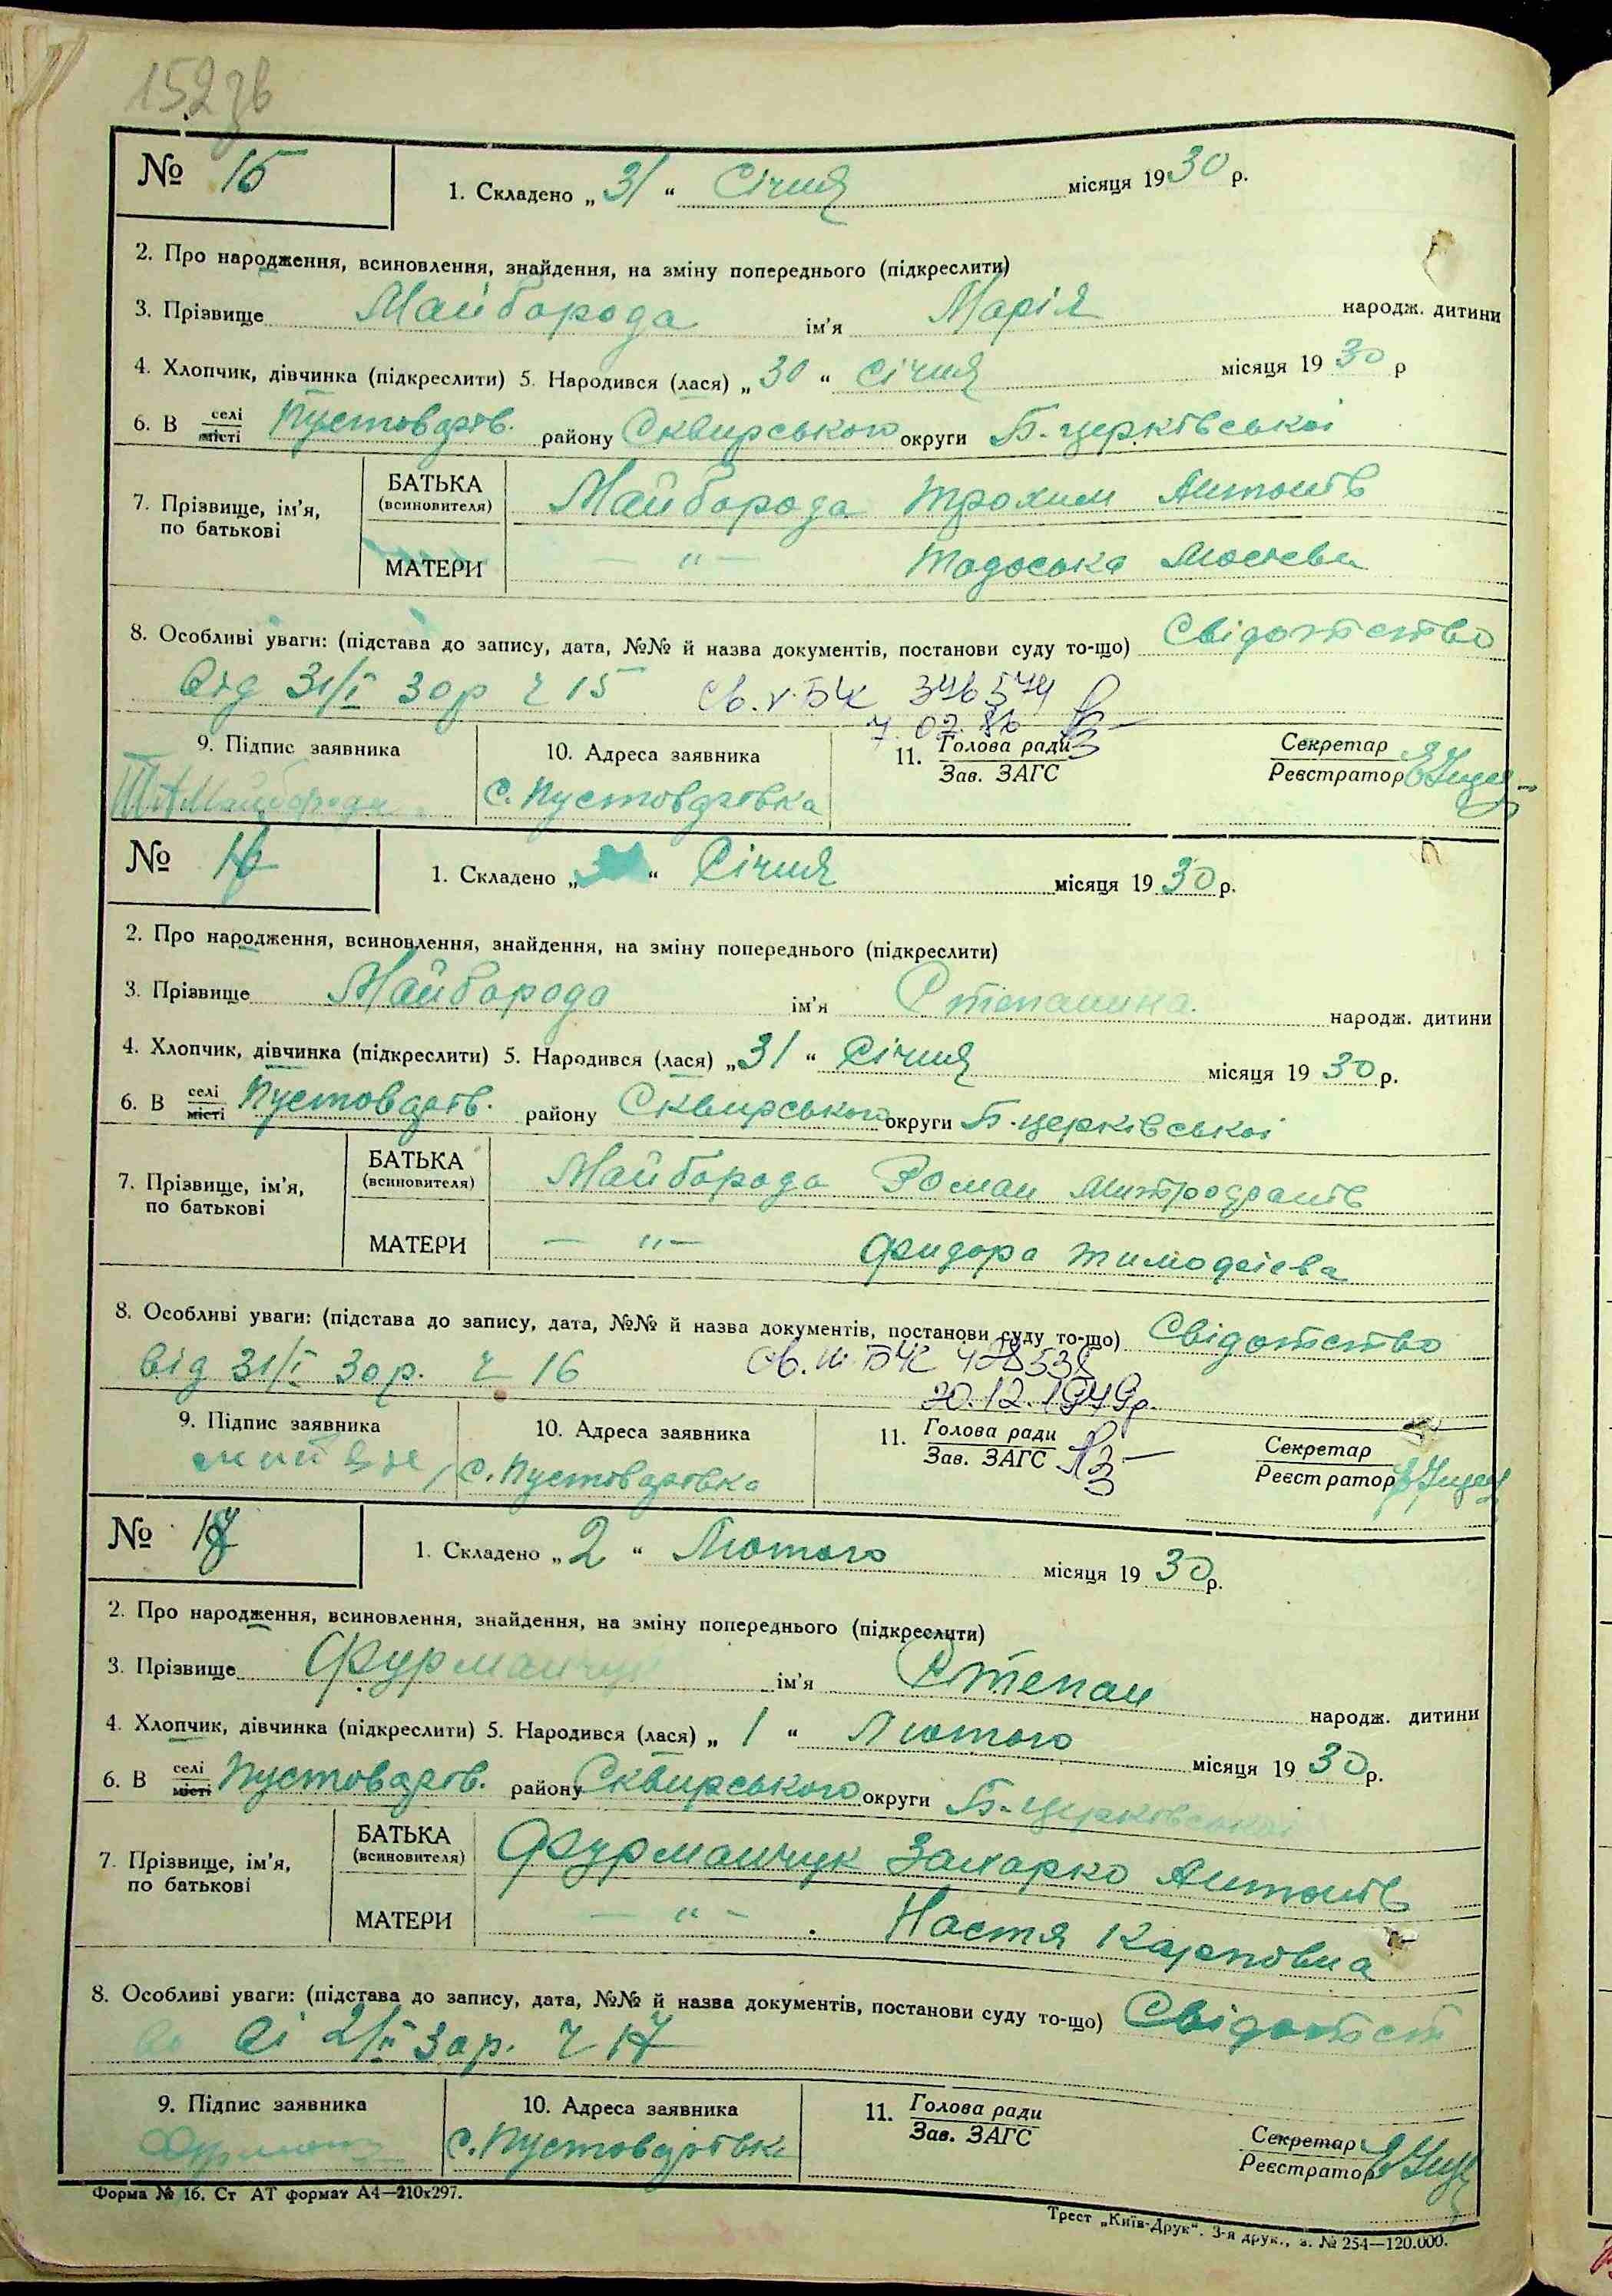 152зв
№ 15
1. Складено „31“ Січня місяця 1930 р.
2. Про народження, всиновлення, знайдення, на зміну попереднього (підкреслити)
3. Прізвище Майборода ім'я Марія народж. дитини
4. Хлопчик, дівчинка (підкреслити) 5. Народився (лася) „30“ Січня місяця 1930 р
6. В селі місті Пустоварів. району Сквирського округи Б-церківської
7. Прізвище, ім'я, по батькові
БАТЬКА (всиновителя) Майборода Трохим Антонів
МАТЕРИ — " — Тодоська
8. Особливі уваги: (підстава до запису, дата, №№ й назва документів, постанови суду то-що) Свідотство
від 31/I 30р ч 15 Св. V-БК 346574
7.02.86
9. Підпис заявника 10. Адреса заявника 11. Голова ради Секретар
Зав. ЗАГС Реєстратор
Т.А Майборода с. Пустоварівка
№ 16
1. Складено „ “ Січня місяця 1930 р.
2. Про народження, всиновлення, знайдення, на зміну попереднього (підкреслити)
3. Прізвище Майборода ім'я Степанина. народж. дитини
4. Хлопчик, дівчинка (підкреслити) 5. Народився (лася) „31“ Січня місяця 1930 р.
6. В селі місті Пустоварів. району Сквирського округи Б-церківської
7. Прізвище, ім'я, по батькові
БАТЬКА (всиновителя) Майборода Роман Митрофанів
МАТЕРИ — " — Фидора Тимофієва
8. Особливі уваги: (підстава до запису, дата, №№ й назва документів, постанови суду то-що) Свідотство
від 31/I 30р. ч 16 Св. III-БК 428538
20.12.1979р.
9. Підпис заявника 10. Адреса заявника 11. Голова ради Секретар
Зав. ЗАГС Реєстратор
с. Пустоварівка
№ 17
1. Складено „2“ Лютого місяця 1930 р.
2. Про народження, всиновлення, знайдення, на зміну попереднього (підкреслити)
3. Прізвище Фурманчук ім'я Степан народж. дитини
4. Хлопчик, дівчинка (підкреслити) 5. Народився (лася) „1“ Лютого місяця 1930 р.
6. В селі місті Пустоварів. району Сквирського округи Б-церковської
7. Прізвище, ім'я, по батькові
БАТЬКА (всиновителя) Фурманчук Захарко Антонів
МАТЕРИ — " — Настя Карповна
8. Особливі уваги: (підстава до запису, дата, №№ й назва документів, постанови суду то-що) Свідотст
ві 2/II 30р. ч 17
9. Підпис заявника 10. Адреса заявника 11. Голова ради Секретар
Зав. ЗАГС Реєстратор
с. Пустоварівка
Форма № 16. Ст АТ формат А4—210х297.
Трест „Київ-Друк“. 3-я друк., з. № 254—120.000.